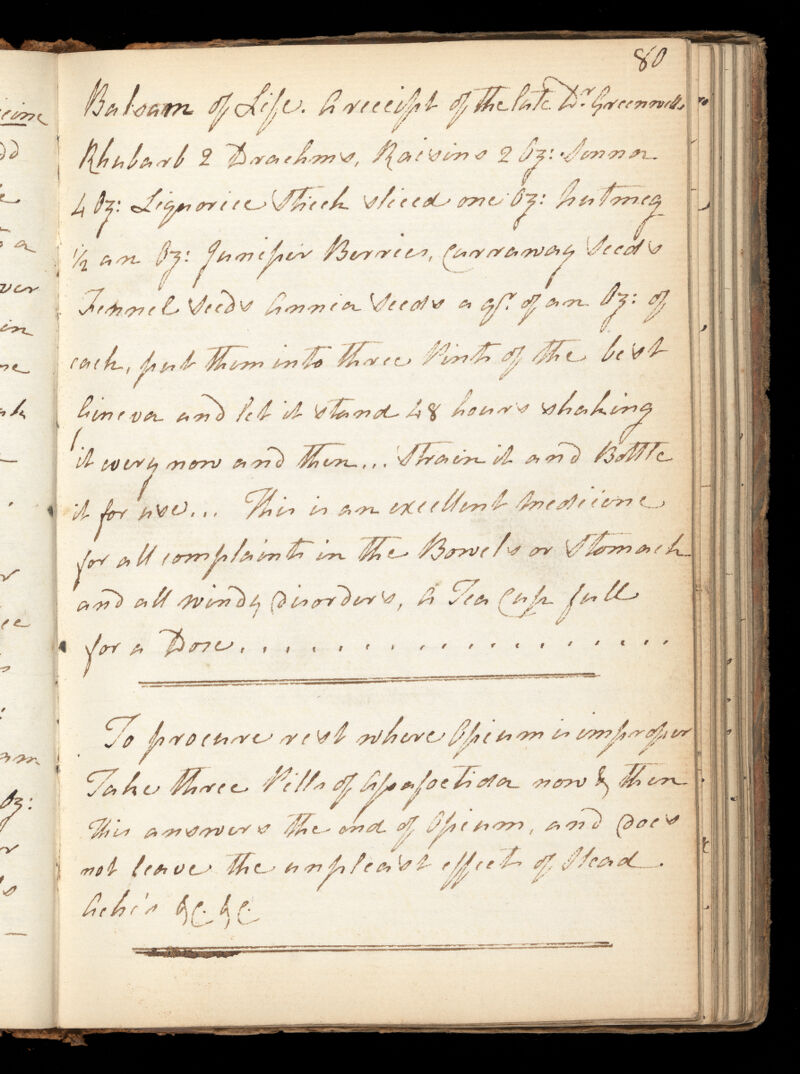 80
Balsam of Life. A receipt of the late Dr. Greenwell
Rhubarb 2 Drachms, Raisins 2 Oz: Senna
4 Oz: Liquorice Stick sliced one Oz: Nutmeg
1/2 an Oz: Juniper Berries, Carraway Seeds
Fennel Seeds Annia Seeds a qr. of an Oz: of
each, put them into three Pints of the best
Gineva and let it stand 48 hours shaking
it every now and then... Strain it and Bottle
it for use... This is an excellent Medicine
for all complaints in the Bowels or Stomach
and all windy disorders, A Tea Cup full
for a Dose...................
To procure rest where Opium is improper
Take three Pills of Assafoetida now & then
This answers the end of Opium, and does
not leave the unpleast effects of Head
Ache's &C. &C.